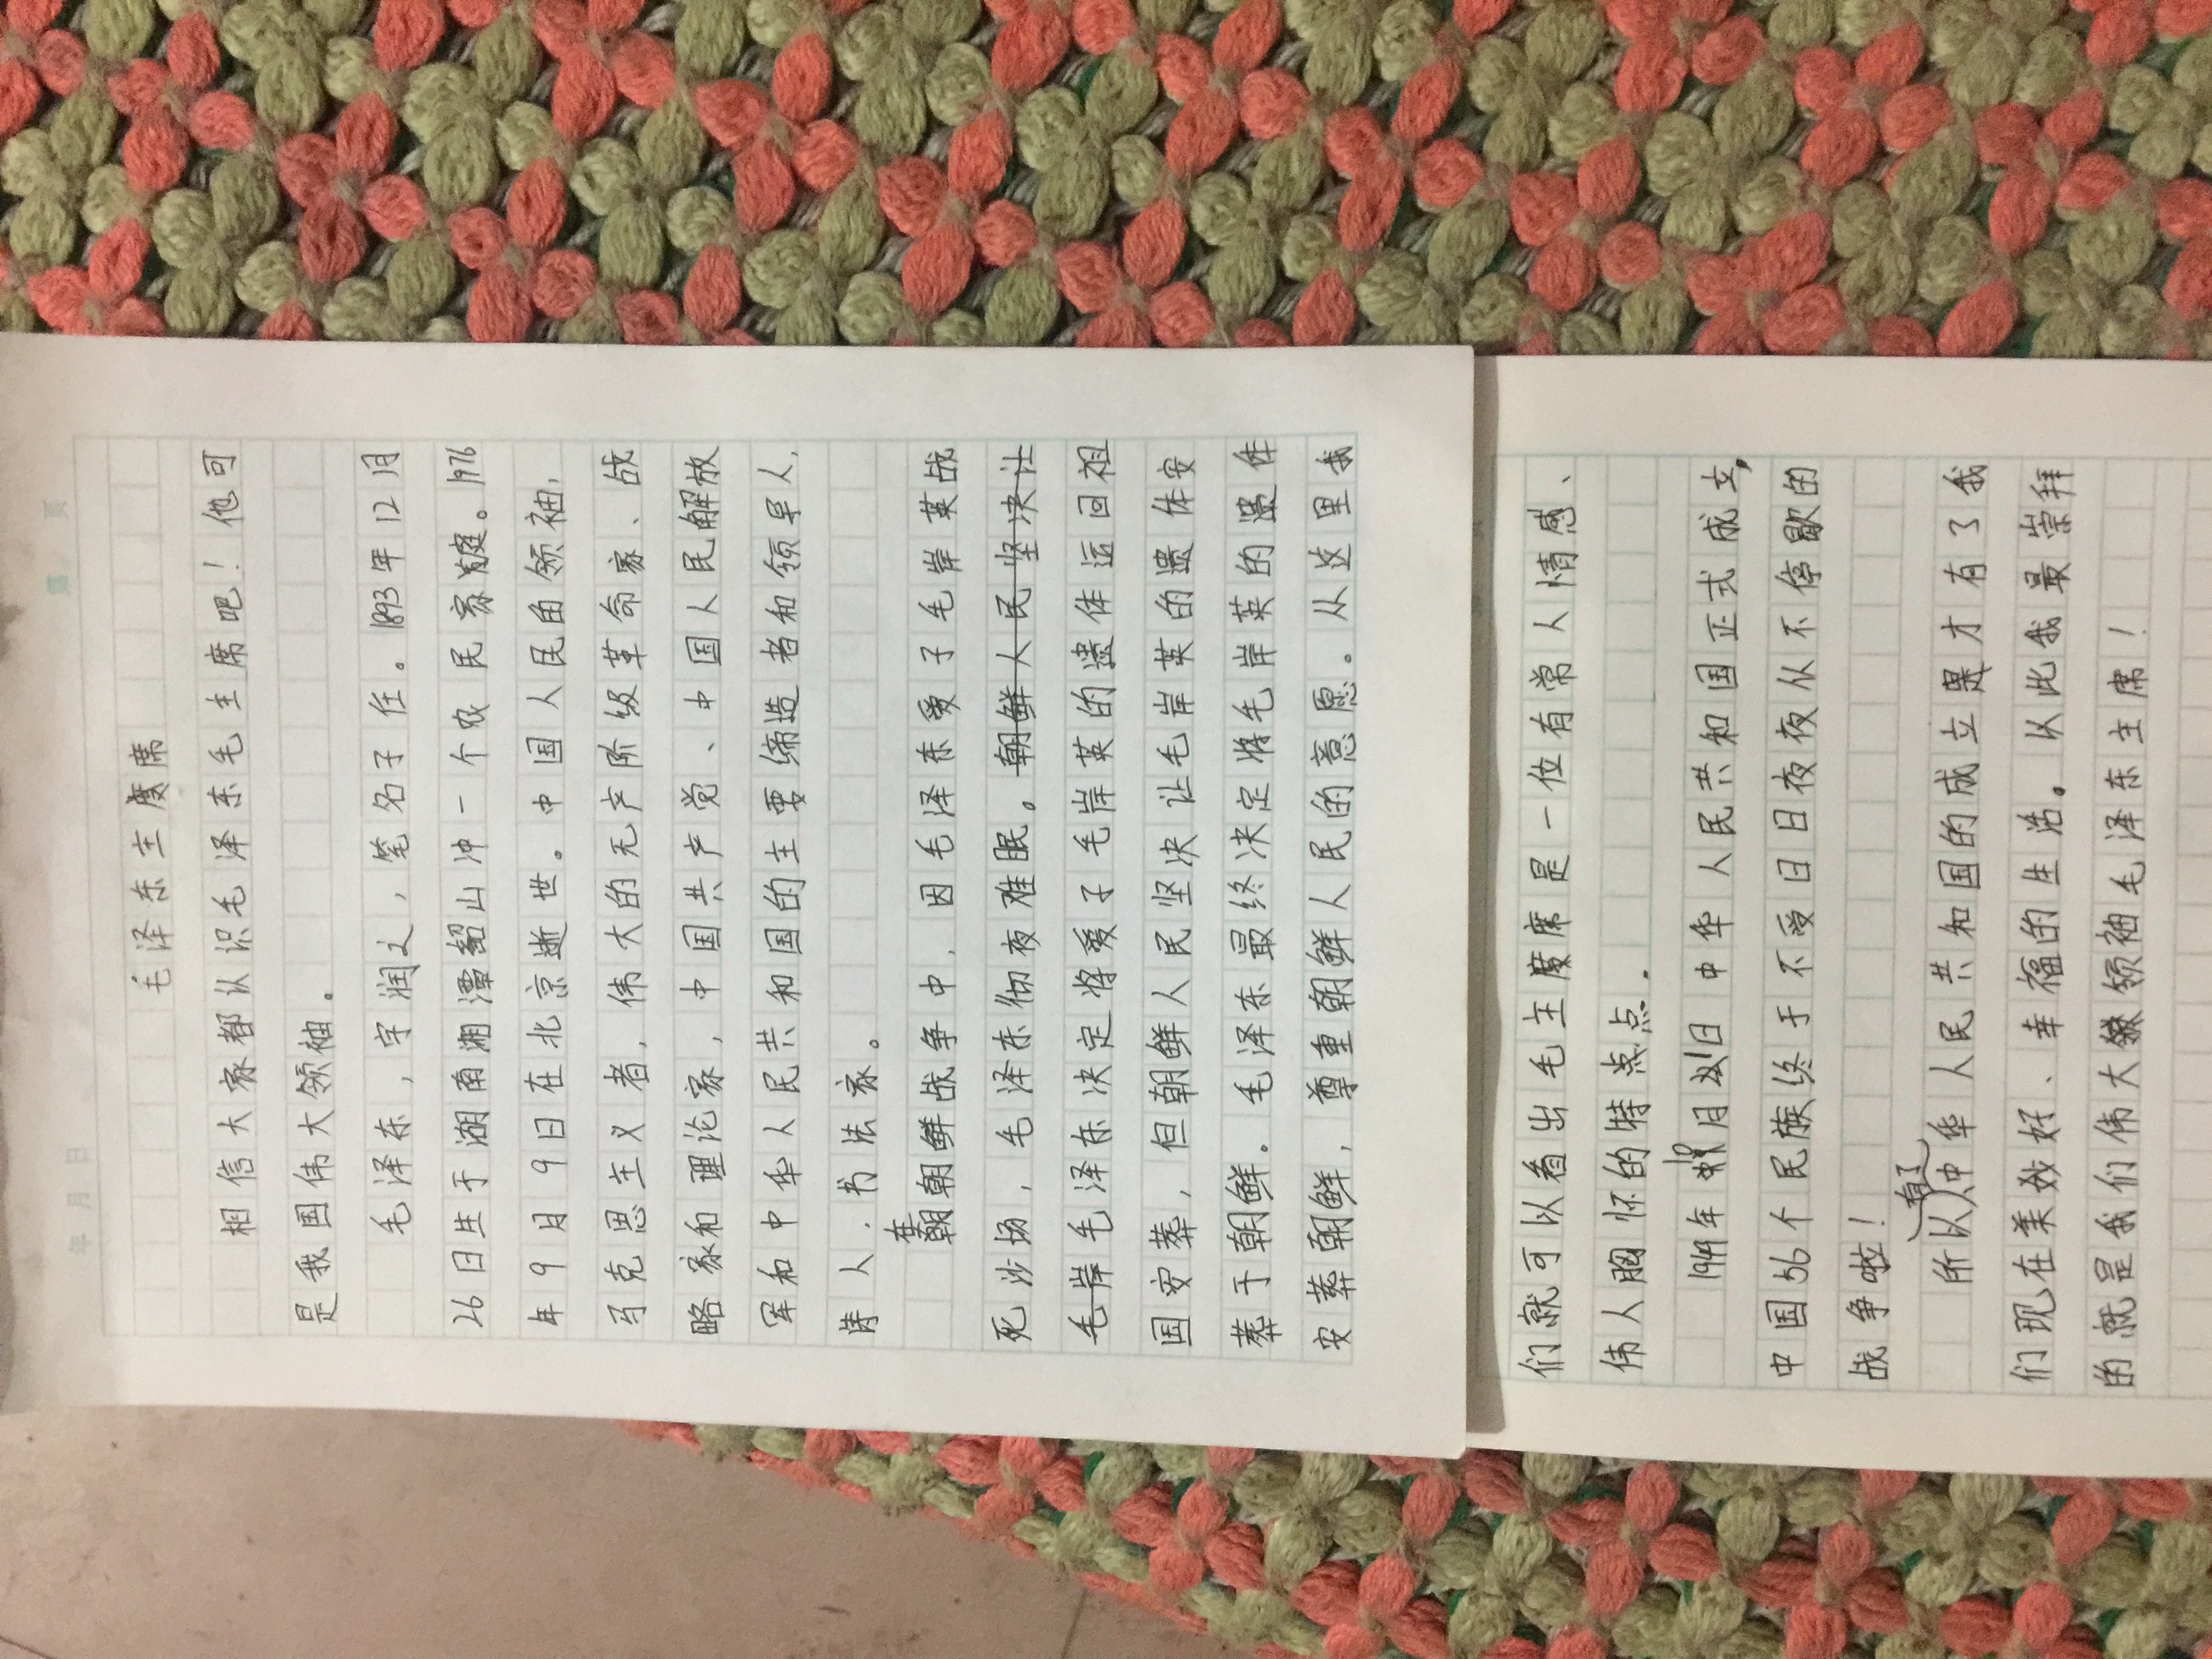 年 月 日
第 页
毛泽东主度席
相信大家都认识毛泽东毛主席吧！他可
是我国伟大领袖。
毛泽东，字润之，笔名子任。1893年12月
26日生于湖南湘潭韶山冲一个农民家庭。1976
年9月9日在北京逝世。中国人民的领袖，
马克思主义者，伟大的无产阶级革命家、战
略家和理论家，中国共产党、中国人民解放
军和中华人民共和国的主要缔造者和领导人，
诗人，书法家。
在朝鲜战争中，因毛泽东爱子毛岸英战
死沙场，毛泽东彻夜难眠。朝鲜人民坚决让
毛岸毛泽东决定将爱子毛岸英的遗体运回祖
国安葬，但朝鲜人民坚决让毛岸英的遗体安
葬于朝鲜。毛泽东最终决定将毛岸英的遗体
安葬朝鲜，尊重朝鲜人民的意愿。从这里我
们就可以看出毛主度席是一位有常人情感、
伟人胸怀的特点点。
1949年10月1日中华人民共和国正式成立，
中国56个民族终于不受日日夜夜从不停歇的
战争啦！
所以有了中华人民共和国的成立是才有了我
们现在美好、幸福的生活。以此我最崇拜
的就是我们伟大领袖毛泽东主席！